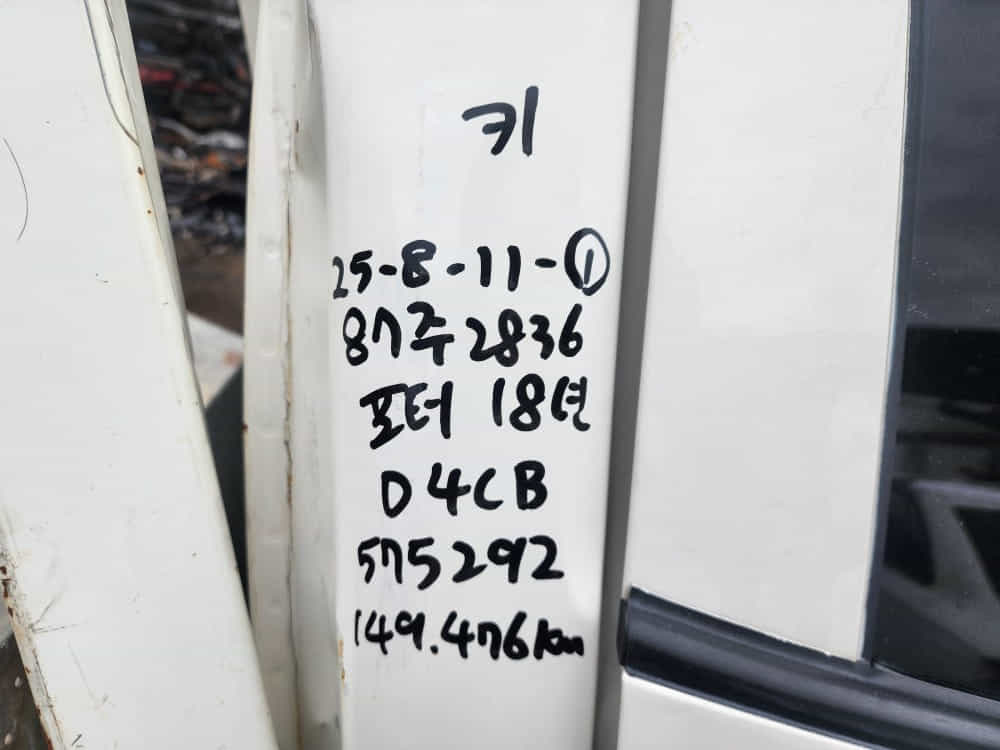 키
25-8-11-①
87주2836
포터 18년
D4CB
575292
149.476km